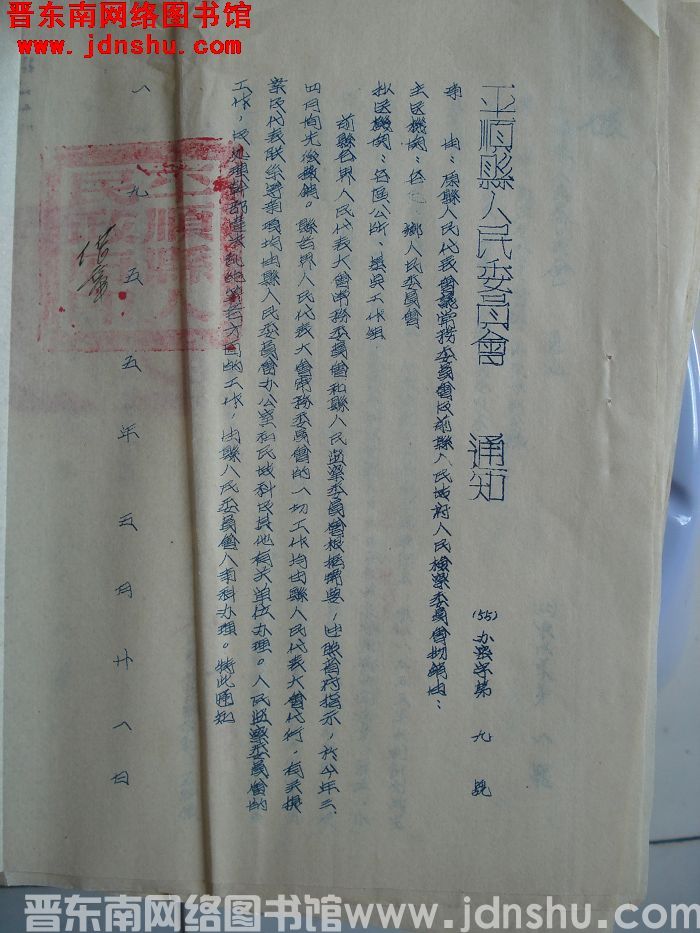 晋东南网络图书馆
www.jdnshu.com
平順縣人民委員會 通知
(55)办密字第 九 號
事 由：原縣人民代表會議常務委員會及前縣人民政府人民檢察委員會撤銷由：
主送機關：各 鄉人民委員會
抄送機關：各區公所、基点工作組
前縣各界人民代表大會常務委員會和縣人民監察委員會根据需要，遵照省府指示，於今年三、
四月間先後撤銷。縣各界人民代表大會常務委員會的一切工作均由縣人民代表大會代行，有关提
案及代表联系等事項均由縣人民委員會办公室和民政科及其他有关單位办理。人民监察委員會的
工作，及处理幹部違法乱纪等各方面的工作，由縣人民委員會人事科办理。特此通知
一九五五年五月廿八日
平順縣人
晋东南网络图书馆 www.jdnshu.com